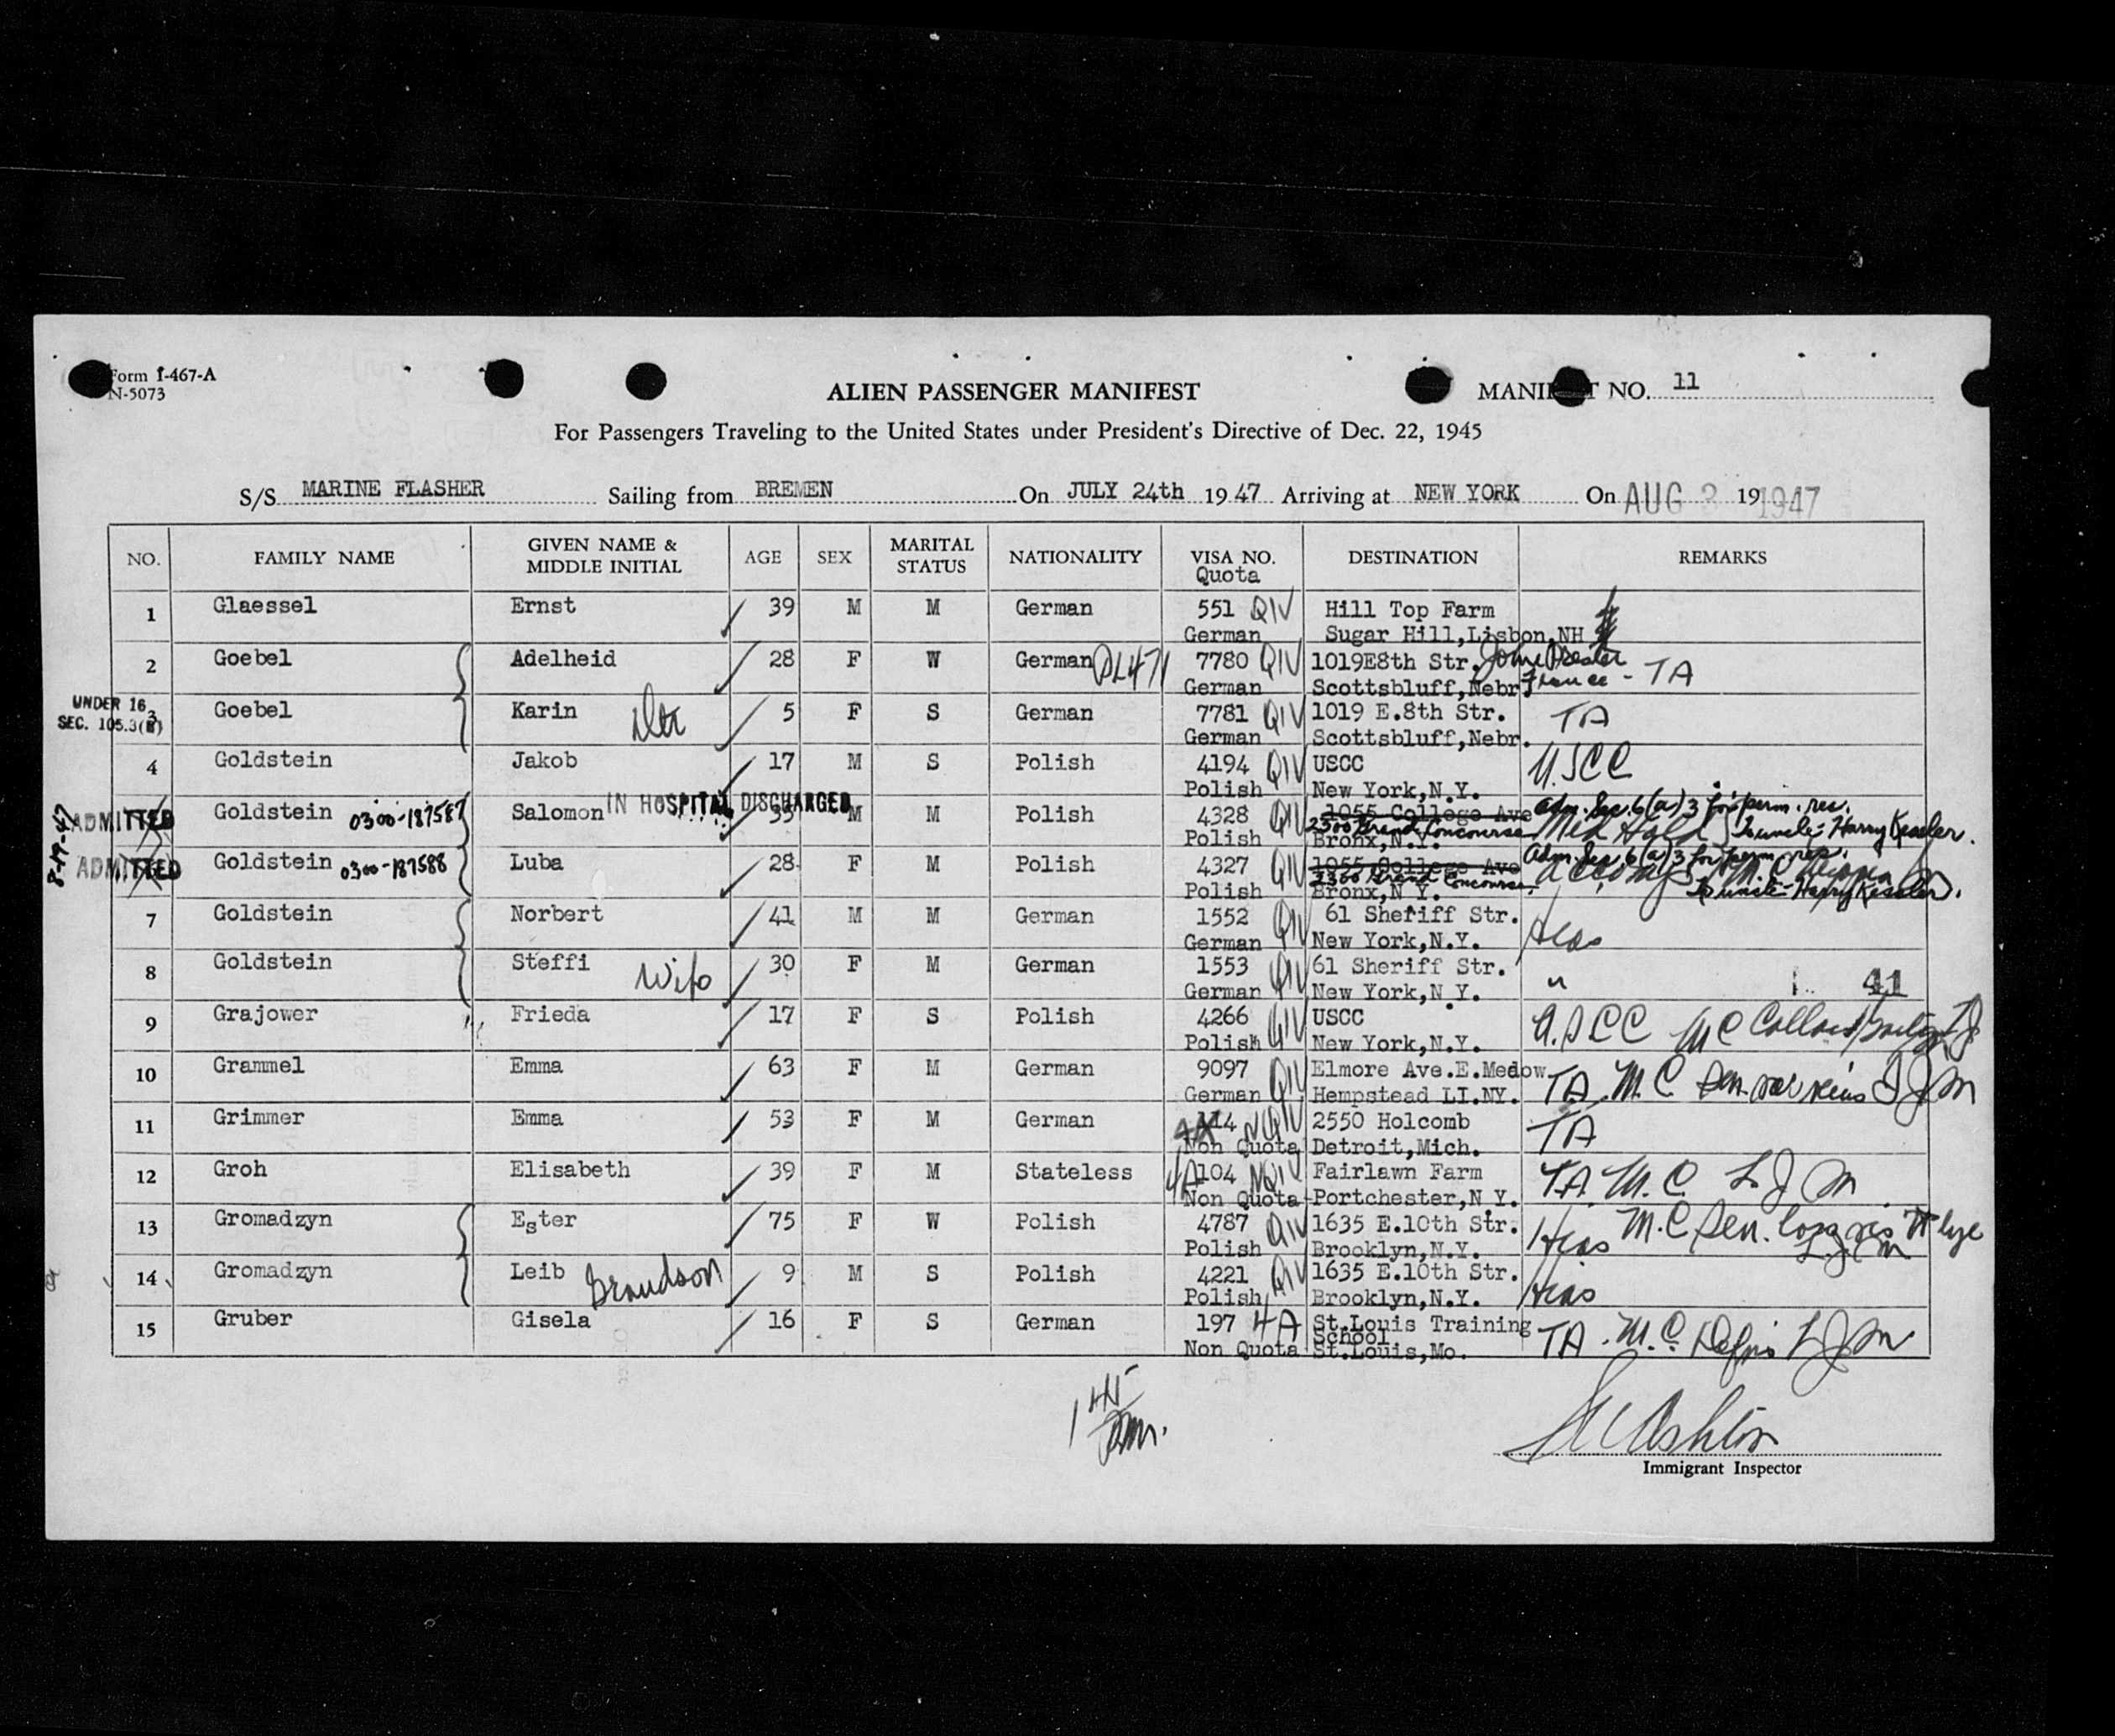 Form I-467-A
N-5073
ALIEN PASSENGER MANIFEST
MANIFEST NO. 11
For Passengers Traveling to the United States under President's Directive of Dec. 22, 1945
S/S MARINE FLASHER Sailing from BREMEN On JULY 24th 1947 Arriving at NEW YORK On AUG 19 1947
NO. FAMILY NAME GIVEN NAME & MIDDLE INITIAL AGE SEX MARITAL STATUS NATIONALITY VISA NO. Quota DESTINATION REMARKS
1 Glaessel Ernst 39 M M German 551 QIV Hill Top Farm
German Sugar Hill,Lisbon,NH
2 Goebel Adelheid 28 F W German 7780 QIV 1019E8th Str. TA
German Scottsbluff,Nebr.
UNDER 16
SEC. 105.3
3 Goebel Karin 5 F S German 7781 QIV 1019 E.8th Str. TA
German Scottsbluff,Nebr.
4 Goldstein Jakob 17 M S Polish 4194 QIV USCC U.S.C.C
Polish New York,N.Y.
8-19-47
ADMITTED Goldstein 0300-187587 Salomon IN HOSPITAL DISCHARGED 35 M M Polish 4328 QIV 1055 College Ave Adm. Sec. 6(a)3 for perm. res.
Polish 2300 Grand Concourse Bronx,N.Y. Med Hold To uncle-Harry Kessler.
ADMITTED Goldstein 0300-187588 Luba 28 F M Polish 4327 QIV 1055 College Ave Adm. Sec. 6(a)3 for perm. res.
Polish 2300 Grand Concourse Bronx,N.Y. To uncle-Harry Kessler.
7 Goldstein Norbert 41 M M German 1552 QIV 61 Sheriff Str. Hias
German New York,N.Y.
8 Goldstein Steffi Wife 30 F M German 1553 QIV 61 Sheriff Str. " 41
German New York,N.Y.
9 Grajower Frieda 17 F S Polish 4266 QIV USCC U.S.C.C M C
Polish New York,N.Y.
10 Grammel Emma 63 F M German 9097 QIV Elmore Ave.E.Medow TA. M. C Sen.
German Hempstead LI.NY.
11 Grimmer Emma 53 F M German 114 NQIV 2550 Holcomb TA
Non Quota Detroit,Mich.
12 Groh Elisabeth 39 F M Stateless 4A 104 NQIV Fairlawn Farm T.A. M. C. L J M
Non Quota Portchester,N.Y.
13 Gromadzyn Ester 75 F W Polish 4787 QIV 1635 E.10th Str. Hias M.C Sen.
Polish Brooklyn,N.Y.
14 Gromadzyn Leib Grandson 9 M S Polish 4221 QIV 1635 E.10th Str. Hias
Polish Brooklyn,N.Y.
15 Gruber Gisela 16 F S German 197 4A St.Louis Training School TA. M. C. L J M
Non Quota St.Louis,Mo.
Immigrant Inspector